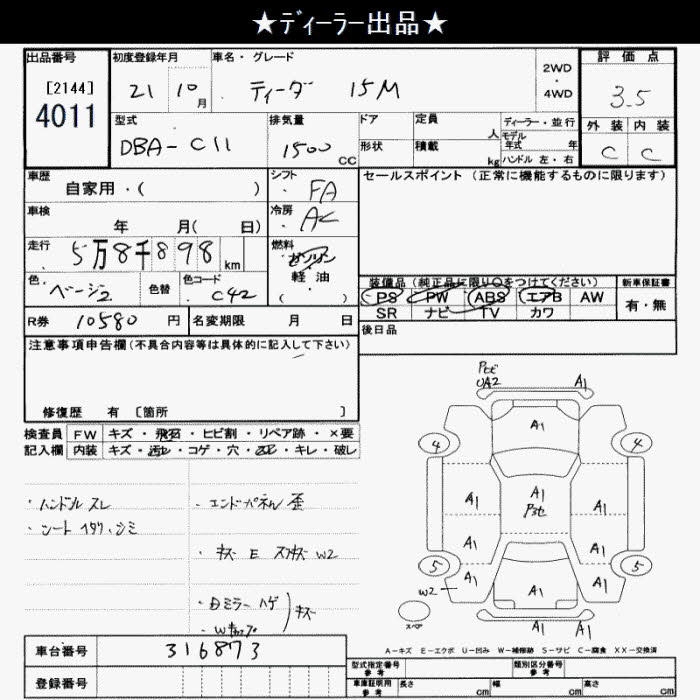 ★ディーラー出品★
出品番号
[2144]
4011
初度登録年月
21 10 月
車名・グレード
ティーダ 15M
2WD
・
4WD
評価点
3.5
外装 内装
C C
型式
DBA-C11
排気量
1500 CC
ドア
形状
定員 人
積載 kg
ディーラー・並行
モデル
年式 年
ハンドル 左・右
車歴
自家用・( )
シフト
FA
セールスポイント (正常に機能するものに限ります)
車検
年 月( 日)
冷房
AC
走行
5万8千898 km
燃料
ガソリン
軽・油
( )
色
ベージュ2
色替
色コード
C42
装備品 (純正品に限り○をつけてください)
PS PW ABS エアB AW
SR ナビ TV カワ
新車保証書
有・無
R券 10580 円
名変期限 月 日
後日品
注意事項申告欄(不具合内容等は具体的に記入して下さい)
修復歴 有 [箇所 ]
検査員
記入欄
FW キズ・飛石・ヒビ割・リペア跡・×要
内装 キズ・汚れ・コゲ・穴・・キレ・破レ
・ハンドル スレ
・シート ヘタリ、シミ
・エンドパネル 歪
・キズ E スリキズ W2
・ミラー ハゲ
・W
キズ
UA2
A1
A1
4
4
A1
A1
A1
A1
A1
5
5
A1
A1
A1
A1
W2
A1
A1
スペア
A-キズ E-エクボ U-凹み W-補修跡 S-サビ C-腐食 XX-交換済
車台番号 316873
登録番号
型式指定番号
参考
類別区分番号
参考
車庫証明用
参考
長さ cm
幅 cm
高さ cm